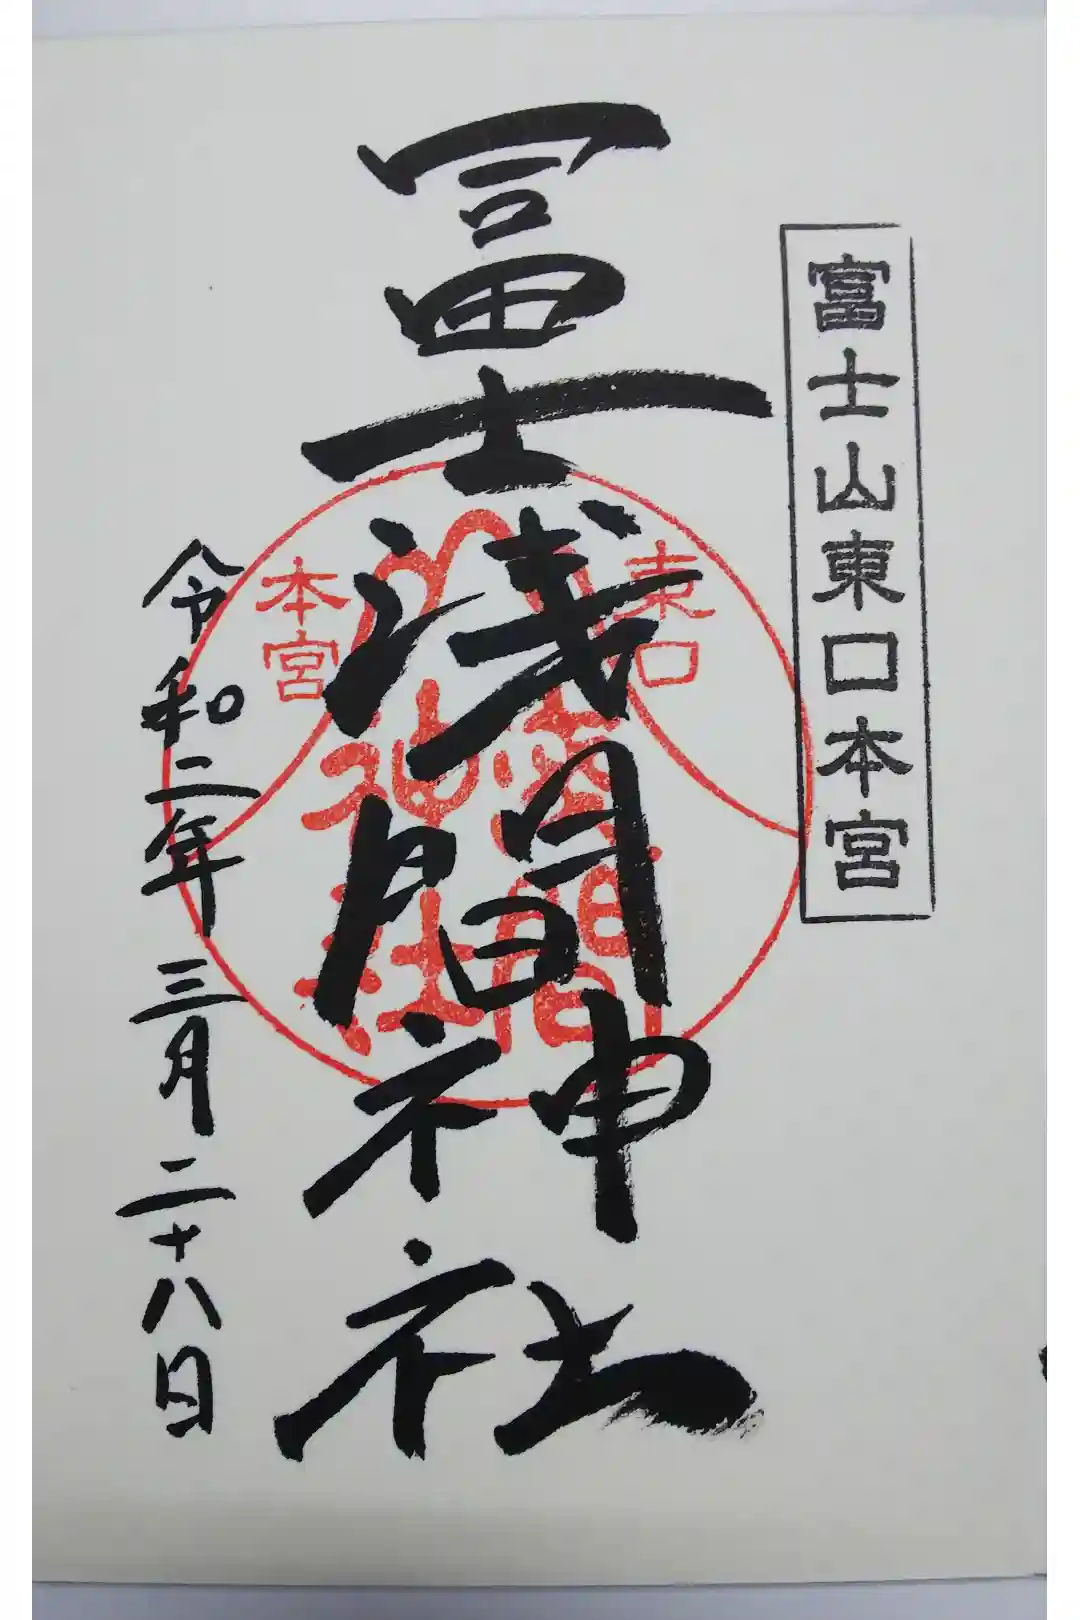 富士山東口本宮
冨士浅間神社
東口
本宮
浅間
神社
令和二年 三月 二十八日